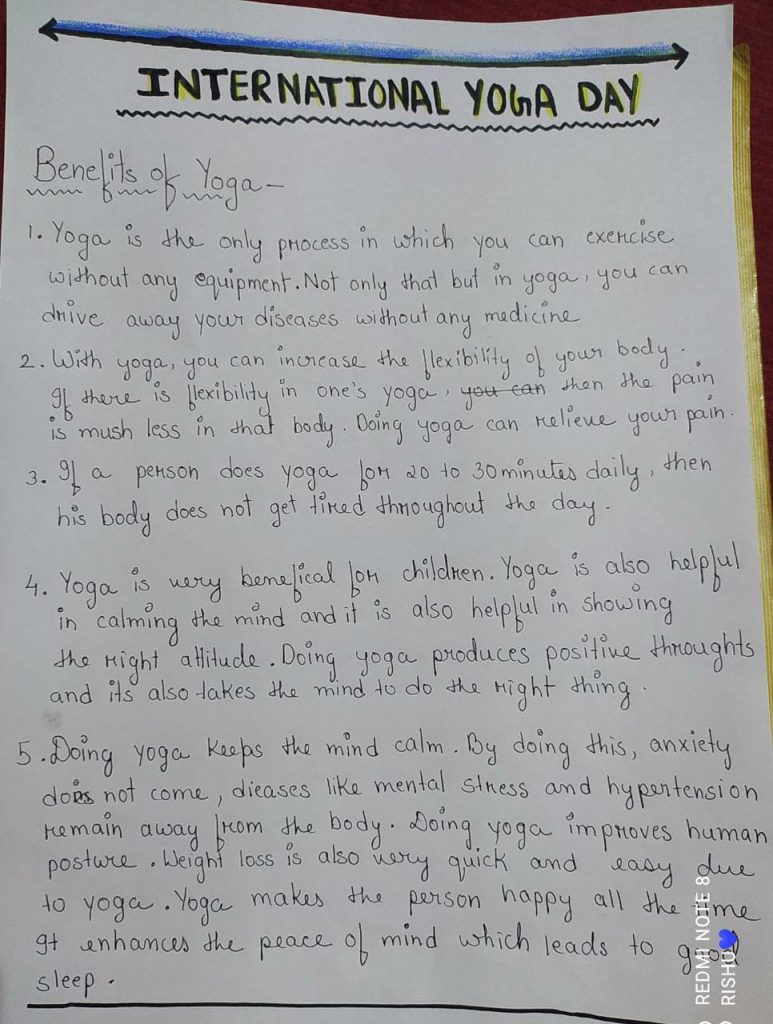 INTERNATIONAL YOGA DAY
Benefits of Yoga-
1. Yoga is the only process in which you can exercise
without any equipment. Not only that but in yoga, you can
drive away your diseases without any medicine
2. With yoga, you can increase the flexibility of your body.
If there is flexibility in one's yoga, you can then the pain
is mush less in that body. Doing yoga can relieve your pain.
3. If a person does yoga for 20 to 30 minutes daily, then
his body does not get tired throughout the day.
4. Yoga is very benefical for children. Yoga is also helpful
in calming the mind and it is also helpful in showing
the right attitude. Doing yoga produces positive throughts
and its also takes the mind to do the right thing.
5. Doing yoga keeps the mind calm. By doing this, anxiety
does not come, dieases like mental stress and hypertension
remain away from the body. Doing yoga improves human
posture. Weight loss is also very quick and easy due
to yoga. Yoga makes the person happy all the time
It enhances the peace of mind which leads to good
sleep.
REDMI NOTE 8
RISHU💙